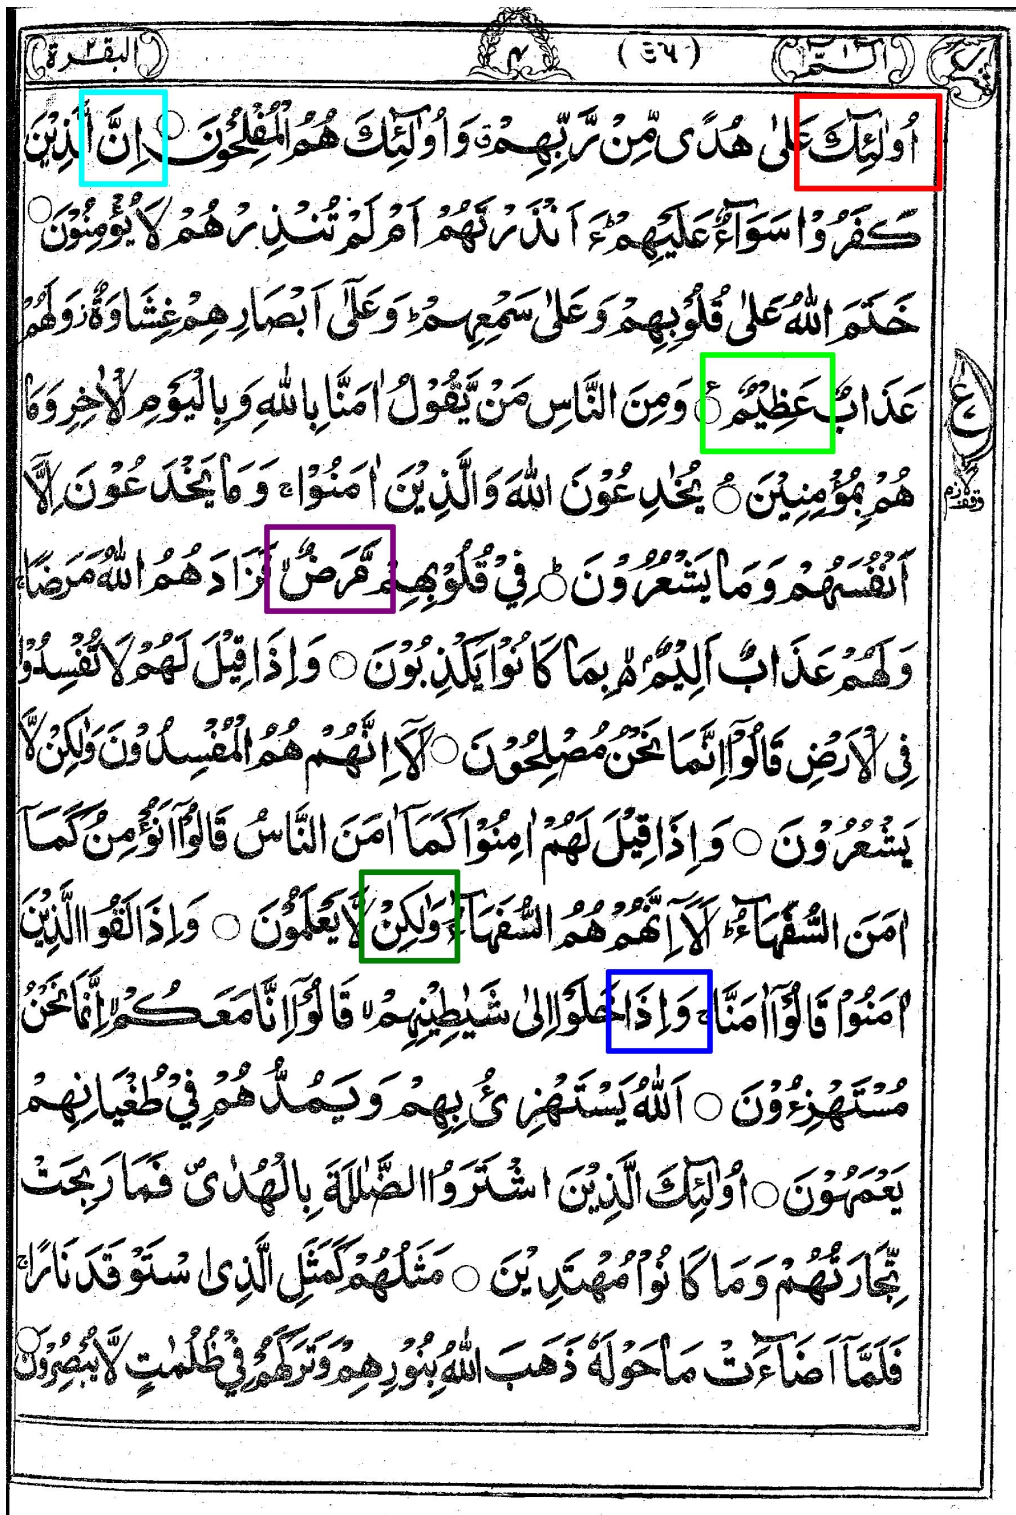 البقرة ٢ (٤٦) ٢ الٓمّٓ ١
اُولٰٓئِكَ عَلٰى هُدًى مِّنْ رَّبِّهِمْ ۗ وَاُولٰٓئِكَ هُمُ الْمُفْلِحُوْنَ ○ اِنَّ الَّذِيْنَ
كَفَرُوْا سَوَآءٌ عَلَيْهِمْ ءَاَنْذَرْتَهُمْ اَمْ لَمْ تُنْذِرْهُمْ لَا يُؤْمِنُوْنَ ○
خَتَمَ اللّٰهُ عَلٰى قُلُوْبِهِمْ وَعَلٰى سَمْعِهِمْ ؕ وَعَلٰٓى اَبْصَارِهِمْ غِشَاوَةٌ ز وَلَهُمْ
عَذَابٌ عَظِيْمٌ ○ وَمِنَ النَّاسِ مَنْ يَّقُوْلُ اٰمَنَّا بِاللّٰهِ وَبِالْيَوْمِ الْاٰخِرِ وَمَا
هُمْ بِمُؤْمِنِيْنَ ○ يُخٰدِعُوْنَ اللّٰهَ وَالَّذِيْنَ اٰمَنُوْا ۚ وَمَا يَخْدَعُوْنَ اِلَّآ
اَنْفُسَهُمْ وَمَا يَشْعُرُوْنَ ○ فِيْ قُلُوْبِهِمْ مَّرَضٌ ۙ فَزَادَهُمُ اللّٰهُ مَرَضًا ۚ
وَلَهُمْ عَذَابٌ اَلِيْمٌۢ ۙ بِمَا كَانُوْا يَكْذِبُوْنَ ○ وَاِذَا قِيْلَ لَهُمْ لَا تُفْسِدُوْا
فِى الْاَرْضِ قَالُوْٓا اِنَّمَا نَحْنُ مُصْلِحُوْنَ ○ اَلَآ اِنَّهُمْ هُمُ الْمُفْسِدُوْنَ وَلٰكِنْ لَّا
يَشْعُرُوْنَ ○ وَاِذَا قِيْلَ لَهُمْ اٰمِنُوْا كَمَآ اٰمَنَ النَّاسُ قَالُوْٓا اَنُؤْمِنُ كَمَآ
اٰمَنَ السُّفَهَآءُ ؕ اَلَآ اِنَّهُمْ هُمُ السُّفَهَآءُ وَلٰكِنْ لَّا يَعْلَمُوْنَ ○ وَاِذَا لَقُوا الَّذِيْنَ
اٰمَنُوْا قَالُوْٓا اٰمَنَّا ۚ وَاِذَا خَلَوْا اِلٰى شَيٰطِيْنِهِمْ ۙ قَالُوْٓا اِنَّا مَعَكُمْ ۙ اِنَّمَا نَحْنُ
مُسْتَهْزِءُوْنَ ○ اَللّٰهُ يَسْتَهْزِئُ بِهِمْ وَيَمُدُّهُمْ فِيْ طُغْيَانِهِمْ
يَعْمَهُوْنَ ○ اُولٰٓئِكَ الَّذِيْنَ اشْتَرَوُا الضَّلٰلَةَ بِالْهُدٰى ۠ فَمَا رَبِحَتْ
تِّجَارَتُهُمْ وَمَا كَانُوْا مُهْتَدِيْنَ ○ مَثَلُهُمْ كَمَثَلِ الَّذِى اسْتَوْقَدَ نَارًا ۚ
فَلَمَّآ اَضَآءَتْ مَا حَوْلَهٗ ذَهَبَ اللّٰهُ بِنُوْرِهِمْ وَتَرَكَهُمْ فِيْ ظُلُمٰتٍ لَّا يُبْصِرُوْنَ ○